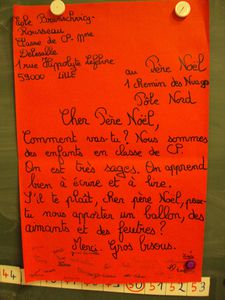 Rousseau
Classe de CP. Mme
1 rue Hippolyte Lefebvre
59000 Lille
au Père Noël
1 Chemin des Nuages
Pôle Nord
Cher Père Noël,
Comment vas-tu ? Nous sommes
des enfants en classe de CP.
On est très sages. On apprend
bien à écrire et à lire.
S'il te plaît, cher père Noël, peux-
tu nous apporter un ballon, des
aimants et des feutres ?
Merci. Gros bisous.
44
50 51 52 53